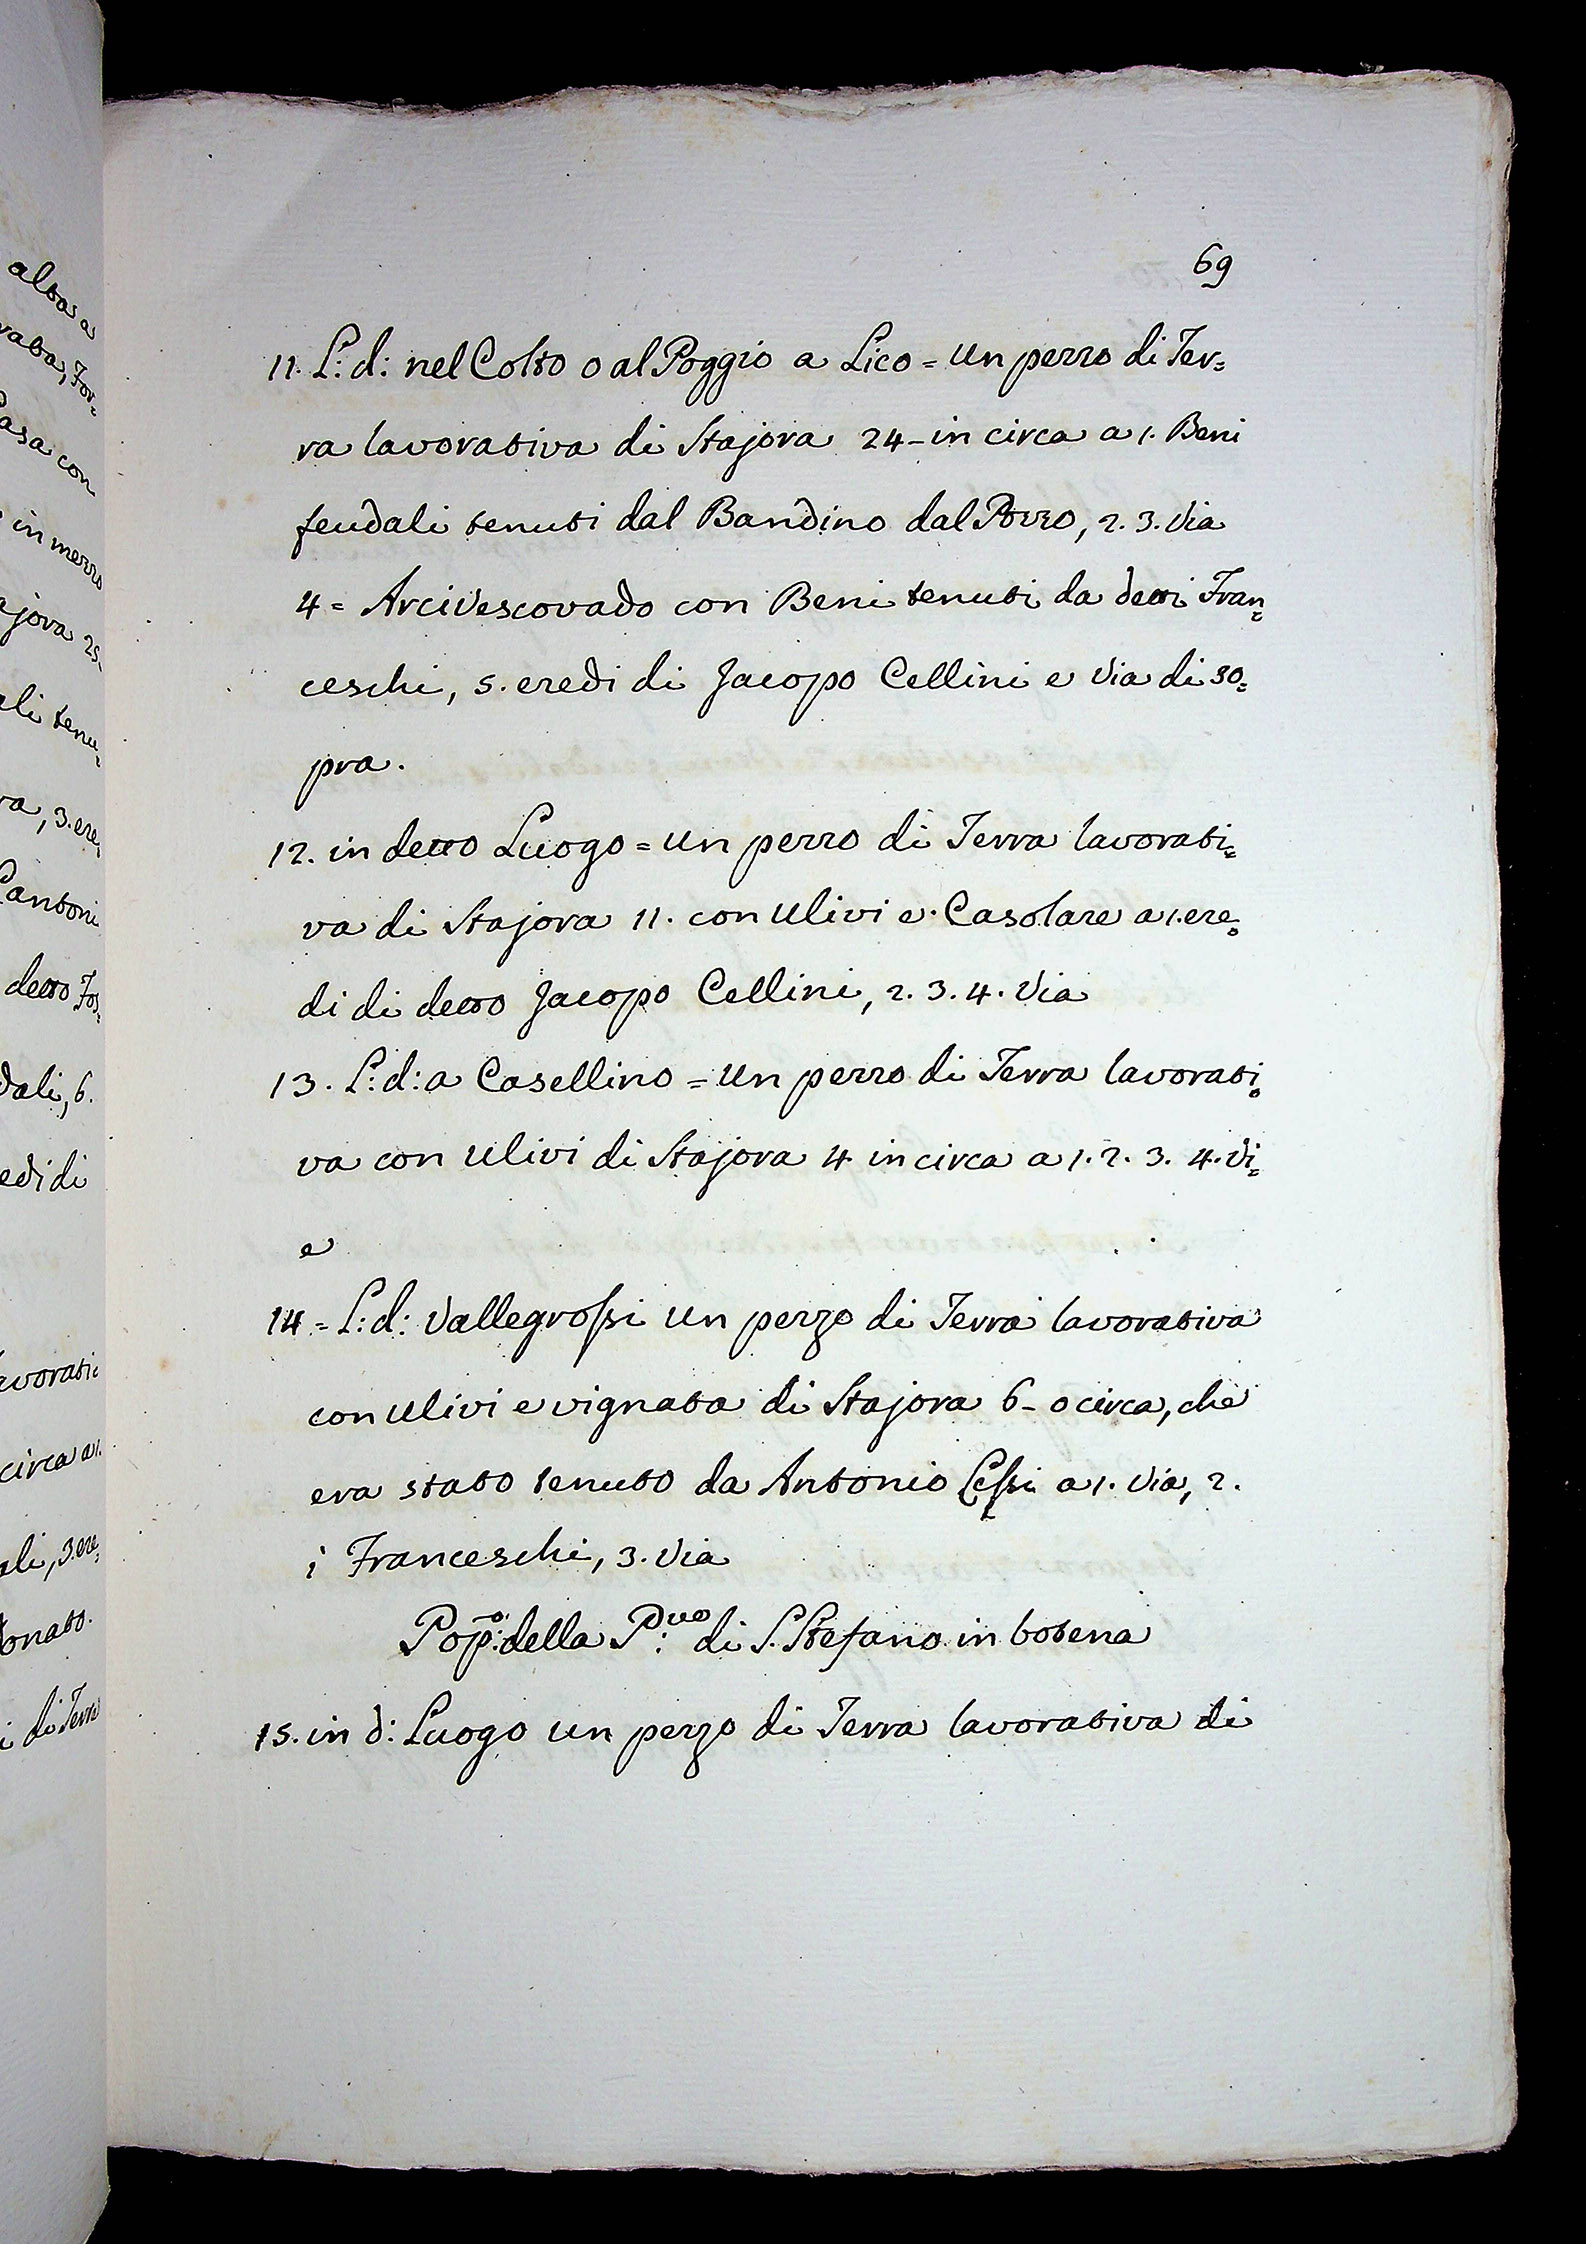 69
11. L: d: nel Colto o al Poggio a Lico = Un pezzo di Ter=
ra lavorativa di Stajora 24 - in circa a 1. Beni
feudali tenuti dal Bandino dal Pozzo, 2. 3. Via
4 = Arcivescovado con Beni tenuti da detti Fran=
ceschi, 5. eredi di Jacopo Cellini e Via di so=
pra.
12. in detto Luogo = Un pezzo di Terra lavorati=
va di Stajora 11. con Ulivi e Casolare a 1. ere=
di di detto Jacopo Cellini, 2. 3. 4. Via
13. L: d: a Casellino = Un pezzo di Terra lavorati=
va con Ulivi di Stajora 4 in circa a 1. 2. 3. 4. Vi=
e
14 = L: d: Vallegrossi Un pezzo di Terra lavorativa
con Ulivi e vignata di Stajora 6 - o circa, che
era stato tenuto da Antonio a 1. Via, 2.
i Franceschi, 3. Via
Popo: della P:ve di S. Stefano in botena
15. in d: Luogo un pezzo di Terra lavorativa di